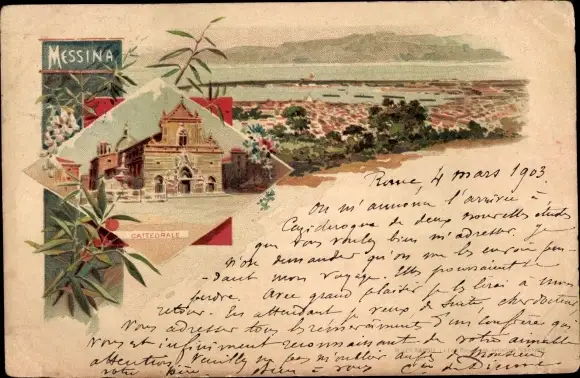 MESSINA
CATTEDRALE
Rome, 4 mars 1903.
On m'annonce l'arrivée à
de deux nouvelles études
que vous voulez bien m'adresser. Je
demander qu'on me les envoie pen-
-dant mon voyage. Elles pourraient se
perdre. Avec grand plaisir je les lirai à mon
retour. En attendant je veux de suite cher
vous adresser tous les remerciements d'un confrère qui
vous est infiniment reconnaissant de votre aimable
attention. Veuillez ne pas m'oublier auprès de Monsieur
votre père à vous